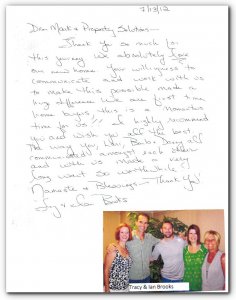 7/13/12
Dear Mark & Property Solutions—
Thank you so much for
this journey. We absolutely love
our new home. Your willingness to
communicate and work with us
to make this possible made a
huge difference. We are first time
home buyers, this is a momentous
time for us!! I highly recommend
you and wish you all the best.
The way you, Lori, Barb, Doug all
communicated amongst each other
and with us made a very
long wait so worthwhile!
Namaste & Blessings— Thank you!
Tracy & Ian Brooks
Tracy & Ian Brooks